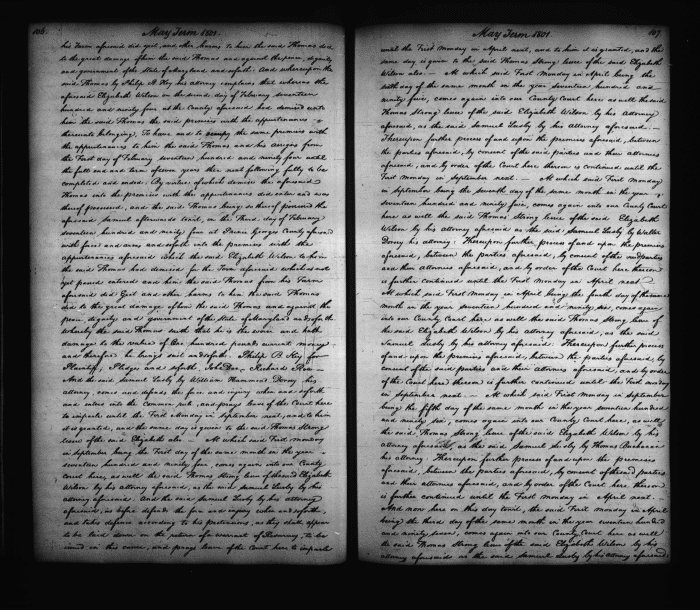 106.
May Term 1801.
his Farm aforesaid did eject, and other harms to him the said Thomas did
to the great damage of him the said Thomas and against the peace, dignity
and government of the State of Maryland and soforth. And whereupon the
said Thomas by Philip B. Key his attorney complains that whereas the
aforesaid Elizabeth Wilson on the second day of February seventeen
hundred and ninety four at the County aforesaid had demised unto
him the said Thomas the said premises with the appurtenances
thereunto belonging. To have and to occupy the same premises with
the appurtenances to him the said Thomas and his assigns from
the First day of February seventeen hundred and ninety four until
the full end and term of seven years then next following fully to be
completed and ended. By virtue of which demise the aforesaid
Thomas into the premises with the appurtenances did enter and was
thereof possessed, and the said Thomas being so thereof possessed the
aforesaid Samuel afterwards towit, on the Third day of February
seventeen hundred and ninety four at Prince Georges County aforesaid
with force and arms and soforth into the premises with the
appurtenances aforesaid which the said Elizabeth Wilson to him
the said Thomas had demised for the Term aforesaid which is not
yet passed entered and him the said Thomas from his Farm
aforesaid did Eject and other harms to him the said Thomas
did to the great damage of him the said Thomas and against the
peace dignity and government of the State of Maryland and soforth.
whereby the said Thomas saith that he is the worse and hath
damage to the value of One hundred pounds current money
and therefore he brings suit and soforth. Philip B. Key for
Plaintiff; Pledges and soforth, John Doe, Richard Roe
And the said Samuel Lusby by William Hammond Dorsey his
attorney, comes and defends the force and injury when and soforth
and enters into the Common rule, and prays leave of the Court here
to imparle until the First Monday in September next, and to him
it is granted, and the same day is given to the said Thomas Strong
lessee of the said Elizabeth also — At which said First monday
in September being the First day of the same month in the year
seventeen hundred and ninety four, comes again into our County
Court here, as well the said Thomas Strong lessee of the said Elizabeth
Wilson by his attorney aforesaid, as the said Samuel Lusby by his
attorney aforesaid. And the said Samuel Lusby by his attorney
aforesaid, as before defends the force and injury when and soforth,
and takes defence according to his pretensions, as they shall appear
to be laid down on the return of a warrant of Resurvey, to be
issued in this cause, and prays leave of the Court here to imparle
May Term 1801.
107.
until the First Monday in April next, and to him it is granted, and the
same day is given to the said Thomas Strong lessee of the said Elizabeth
Wilson also. — At which said First Monday in April being the
sixth day of the same month in the year seventeen hundred and
ninety five, comes again into our County Court here as well the said
Thomas Strong lessee of the said Elizabeth Wilson by his attorney
aforesaid, as the said Samuel Lusby by his attorney aforesaid. —
Thereupon further process of and upon the premises aforesaid, between
the parties aforesaid, by consent of the said parties and their attornies
aforesaid, and by order of the Court here thereon is continued until the
First Monday in September next. — At which said First Monday
in September being the seventh day of the same month in the year
seventeen hundred and ninety five, comes again into our County Court
here as well the said Thomas Strong lessee of the said Elizabeth
Wilson by his attorney aforesaid as the said Samuel Lusby by Walter
Dorsey his attorney: Thereupon further process of and upon the premises
aforesaid, between the parties aforesaid, by consent of the said parties
and their attornies aforesaid, and by order of the Court here thereon
is further continued until the First Monday in April next
At which said First Monday in April being the fourth day of the same
month in the year seventeen hundred and ninety six, comes again
into our County Court here as well the said Thomas Strong lessee of
the said Elizabeth Wilson by his attorney aforesaid, as the said
Samuel Lusby by his attorney aforesaid. Thereupon further process
of and upon the premises aforesaid, between the parties aforesaid, by
consent of the said parties and their attornies aforesaid, and by order
of the Court here thereon is further continued until the First monday
in September next. — At which said First Monday in September
being the fifth day of the same month in the year seventeen hundred
and ninety six, comes again into our County Court here, as well
the said Thomas Strong lessee of the said Elizabeth Wilson by his
attorney aforesaid, as the said Samuel Lusby by Thomas Buchanan
his attorney. Thereupon further process of and upon the premises
aforesaid, between the parties aforesaid, by consent of the said parties
and their attornies aforesaid, and by order of the Court here thereon
is further continued until the First Monday in April next. —
And now here on this day towit, the said First Monday in April
being the third day of the same month in the year seventeen hundred
and ninety seven, comes again into our County Court here as well
the said Thomas Strong lessee of the said Elizabeth Wilson by his
attorney aforesaid as the said Samuel Lusby by his attorney aforesaid